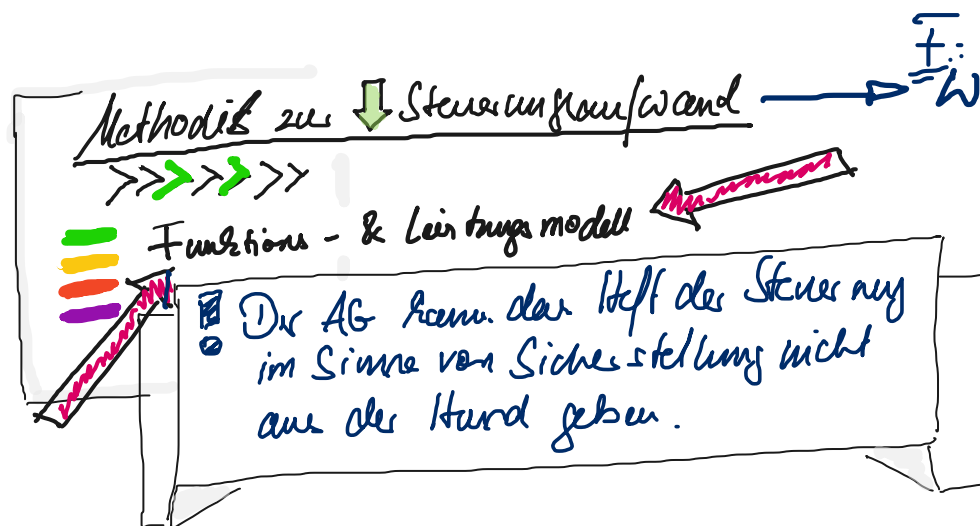 Methodik zur Steuerungsaufwand
Funktions- & Leistungsmodell
Der AG kann das Heft der Steuerung
im Sinne von Sicherstellung nicht
aus der Hand geben.